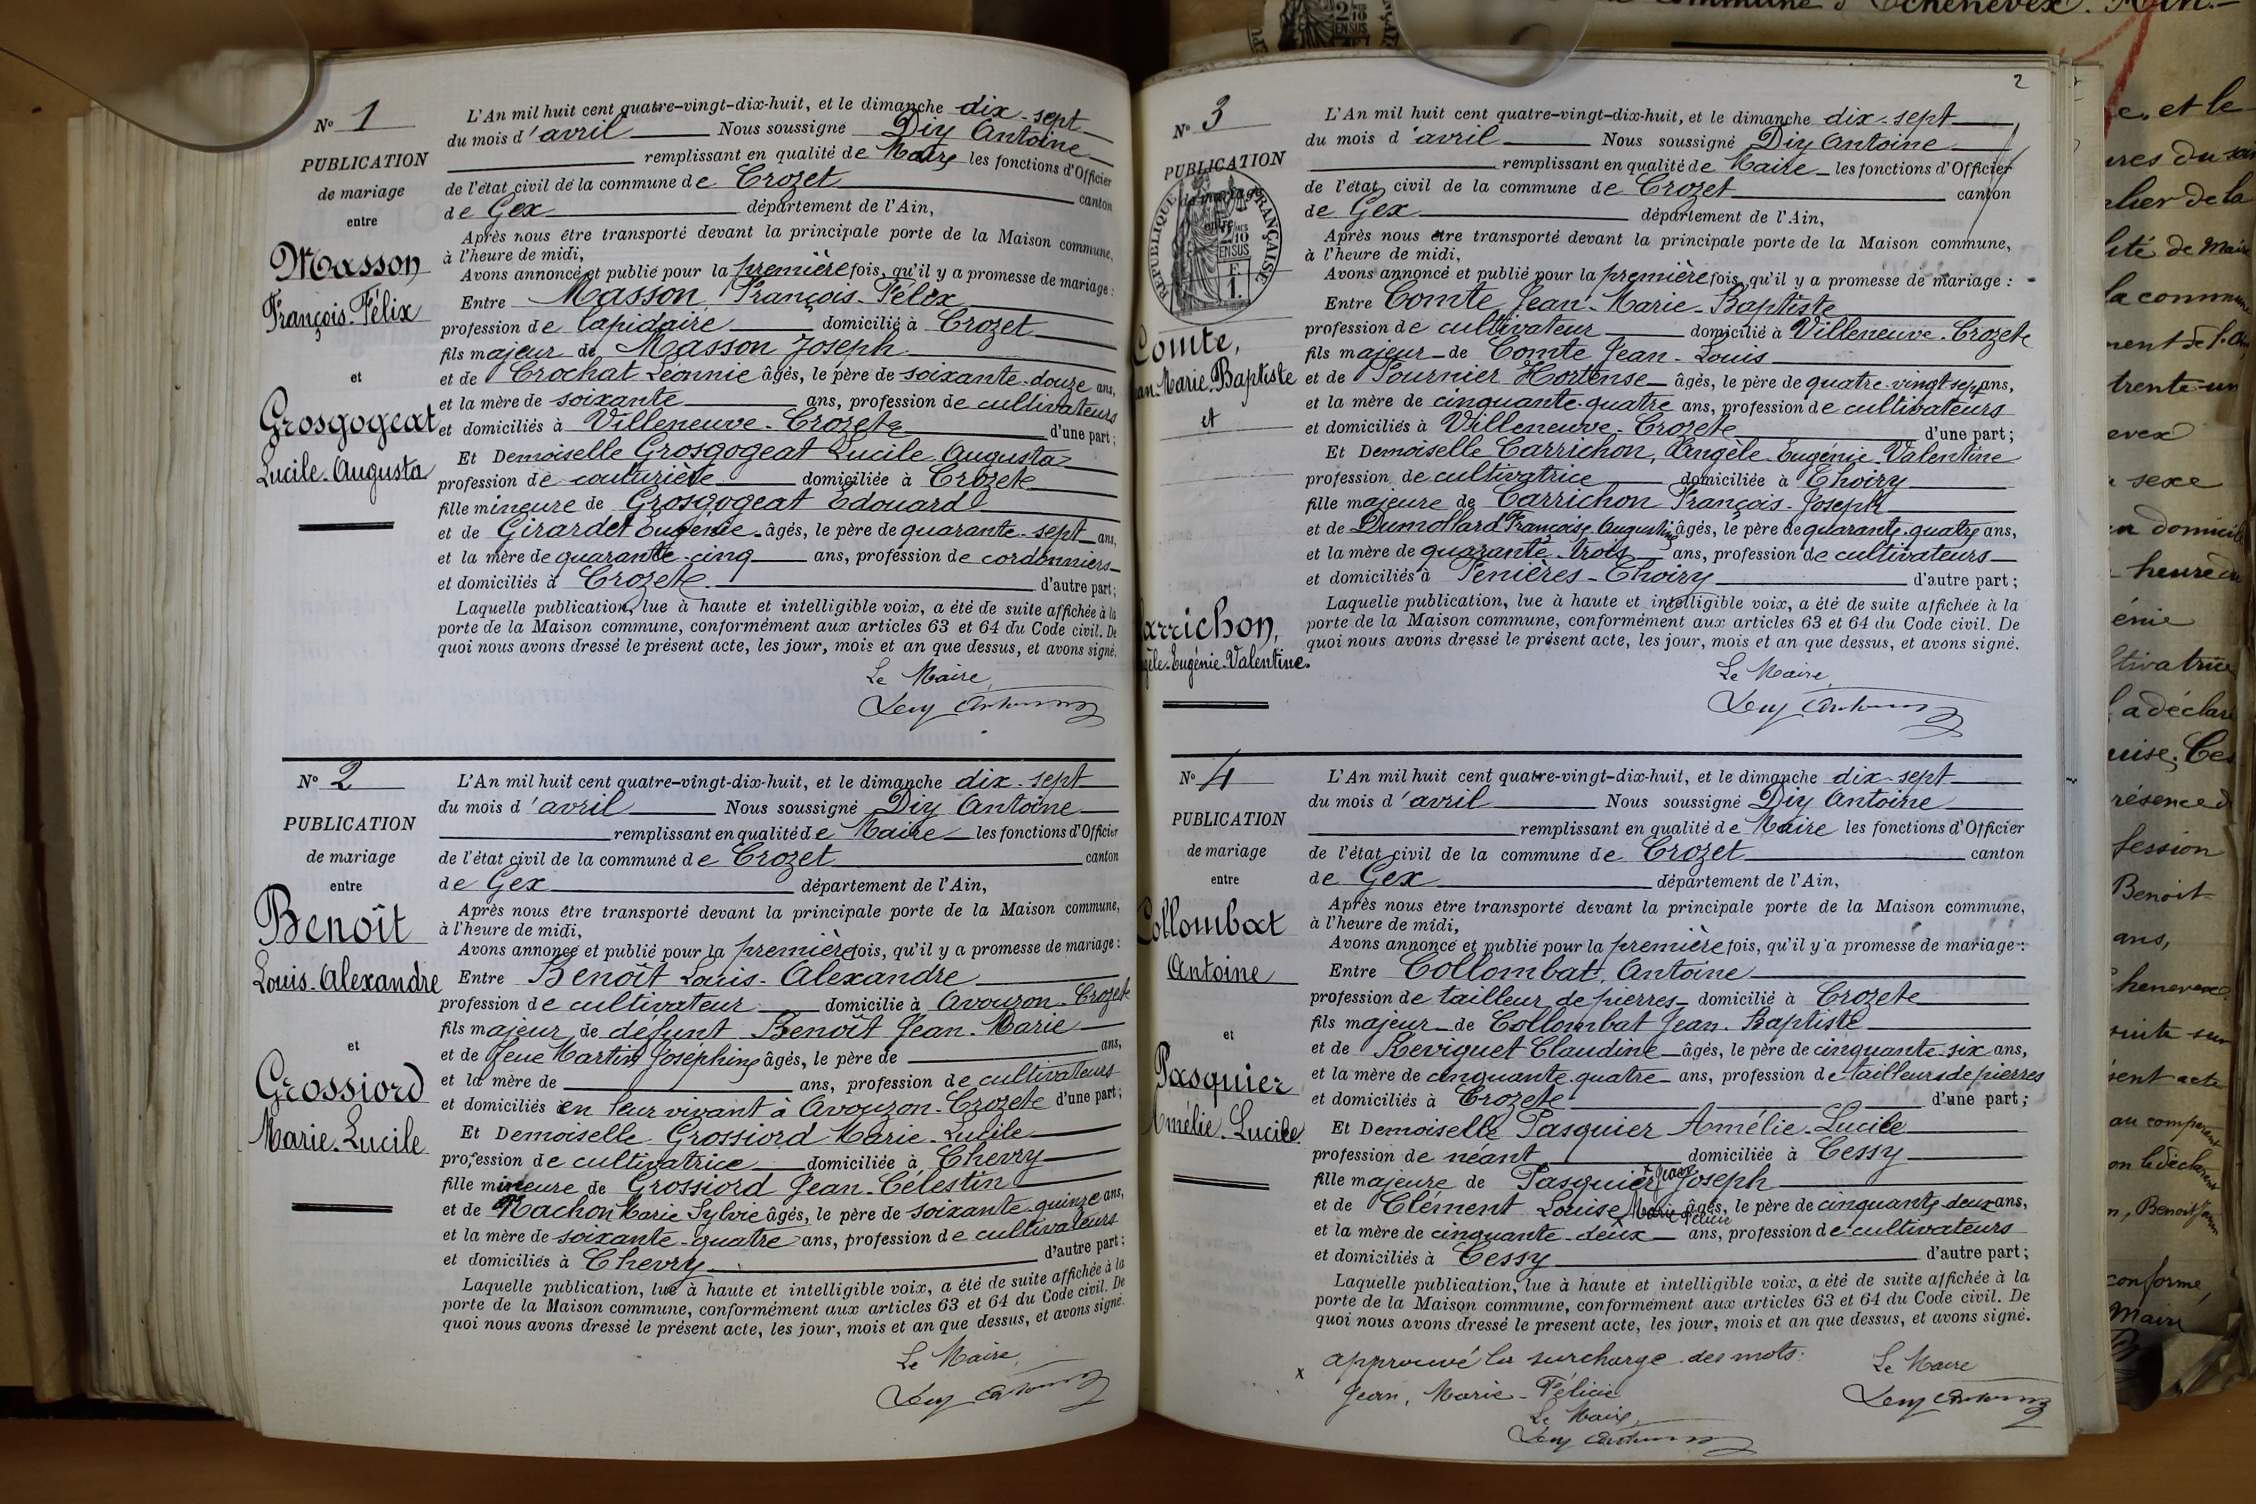 N° 1
PUBLICATION
de mariage
entre
Masson
François-Félix
et
Grosgogeat
Lucile-Augusta
L'An mil huit cent quatre-vingt-dix-huit, et le dimanche dix-sept
du mois d'avril Nous soussigné Diy Antoine
remplissant en qualité de Maire les fonctions d'Officier
de l'état civil de la commune de Crozet canton
de Gex département de l'Ain,
Après nous être transporté devant la principale porte de la Maison commune,
à l'heure de midi,
Avons annoncé et publié pour la première fois, qu'il y a promesse de mariage :
Entre Masson François-Félix
profession de lapidaire domicilié à Crozet
fils majeur de Masson Joseph
et de Crochat Léonnie âgés, le père de soixante-douze ans,
et la mère de soixante ans, profession de cultivateurs
et domiciliés à Villeneuve-Crozet d'une part ;
Et Demoiselle Grosgogeat Lucile Augusta
profession de couturière domiciliée à Crozet
fille mineure de Grosgogeat Edouard
et de Girardet Eugénie âgés, le père de quarante-sept ans,
et la mère de quarante-cinq ans, profession de cordonniers
et domiciliés à Crozet d'autre part ;
Laquelle publication, lue à haute et intelligible voix, a été de suite affichée à la
porte de la Maison commune, conformément aux articles 63 et 64 du Code civil. De
quoi nous avons dressé le présent acte, les jour, mois et an que dessus, et avons signé.
Le Maire,
N° 2
PUBLICATION
de mariage
entre
Benoît
Louis-Alexandre
et
Grossiord
Marie-Lucile
L'An mil huit cent quatre-vingt-dix-huit, et le dimanche dix-sept
du mois d'avril Nous soussigné Diy Antoine
remplissant en qualité de Maire les fonctions d'Officier
de l'état civil de la commune de Crozet canton
de Gex département de l'Ain,
Après nous être transporté devant la principale porte de la Maison commune,
à l'heure de midi,
Avons annoncé et publié pour la première fois, qu'il y a promesse de mariage :
Entre Benoît Louis-Alexandre
profession de cultivateur domicilié à Avouzon-Crozet
fils majeur de défunt Benoît Jean-Marie
et de feue Martin Joséphine âgés, le père de ans,
et la mère de ans, profession de cultivateurs
et domiciliés en leur vivant à Avouzon-Crozet d'une part ;
Et Demoiselle Grossiord Marie-Lucile
profession de cultivatrice domiciliée à Chevry
fille mineure de Grossiord Jean-Célestin
et de Machon Marie Sylvie âgés, le père de soixante-quinze ans,
et la mère de soixante-quatre ans, profession de cultivateurs
et domiciliés à Chevry d'autre part ;
Laquelle publication, lue à haute et intelligible voix, a été de suite affichée à la
porte de la Maison commune, conformément aux articles 63 et 64 du Code civil. De
quoi nous avons dressé le présent acte, les jour, mois et an que dessus, et avons signé.
Le Maire,
2
N° 3
PUBLICATION
de mariage
entre
RÉPUBLIQUE FRANÇAISE
2/10
EN SUS
Comte,
Jean-Marie-Baptiste
et
Carrichon,
Angèle-Eugénie-Valentine.
L'An mil huit cent quatre-vingt-dix-huit, et le dimanche dix-sept
du mois d'avril Nous soussigné Diy Antoine
remplissant en qualité de Maire les fonctions d'Officier
de l'état civil de la commune de Crozet canton
de Gex département de l'Ain,
Après nous être transporté devant la principale porte de la Maison commune,
à l'heure de midi,
Avons annoncé et publié pour la première fois, qu'il y a promesse de mariage :
Entre Comte Jean-Marie-Baptiste
profession de cultivateur domicilié à Villeneuve-Crozet
fils majeur de Comte Jean-Louis
et de Fournier Hortense âgés, le père de quatre-vingt-sept ans,
et la mère de cinquante-quatre ans, profession de cultivateurs
et domiciliés à Villeneuve-Crozet d'une part ;
Et Demoiselle Carrichon, Angèle-Eugénie-Valentine
profession de cultivatrice domiciliée à Thoiry
fille majeure de Carrichon François-Joseph
et de Dumollard Françoise Augustine âgés, le père de quarante-quatre ans,
et la mère de quarante-trois ans, profession de cultivateurs
et domiciliés à Fenières-Thoiry d'autre part ;
Laquelle publication, lue à haute et intelligible voix, a été de suite affichée à la
porte de la Maison commune, conformément aux articles 63 et 64 du Code civil. De
quoi nous avons dressé le présent acte, les jour, mois et an que dessus, et avons signé.
Le Maire,
N° 4
PUBLICATION
de mariage
entre
Collombat
Antoine
et
Pasquier
Amélie-Lucile
L'An mil huit cent quatre-vingt-dix-huit, et le dimanche dix-sept
du mois d'avril Nous soussigné Diy Antoine
remplissant en qualité de Maire les fonctions d'Officier
de l'état civil de la commune de Crozet canton
de Gex département de l'Ain,
Après nous être transporté devant la principale porte de la Maison commune,
à l'heure de midi,
Avons annoncé et publié pour la première fois, qu'il y a promesse de mariage :
Entre Collombat Antoine
profession de tailleur de pierres domicilié à Crozet
fils majeur de Collombat Jean-Baptiste
et de Reviguet Claudine âgés, le père de cinquante-six ans,
et la mère de cinquante-quatre ans, profession de tailleurs de pierres
et domiciliés à Crozet d'une part ;
Et Demoiselle Pasquier Amélie-Lucile
profession de néant domiciliée à Cessy
fille majeure de Pasquier x Jean Joseph
et de Clément Louise Marie Félicie âgés, le père de cinquante-deux ans,
et la mère de cinquante-deux ans, profession de cultivateurs
et domiciliés à Cessy d'autre part ;
Laquelle publication, lue à haute et intelligible voix, a été de suite affichée à la
porte de la Maison commune, conformément aux articles 63 et 64 du Code civil. De
quoi nous avons dressé le présent acte, les jour, mois et an que dessus, et avons signé.
x approuvé la surcharge des mots:
Jean, Marie-Félicie
Le Maire,
Le Maire